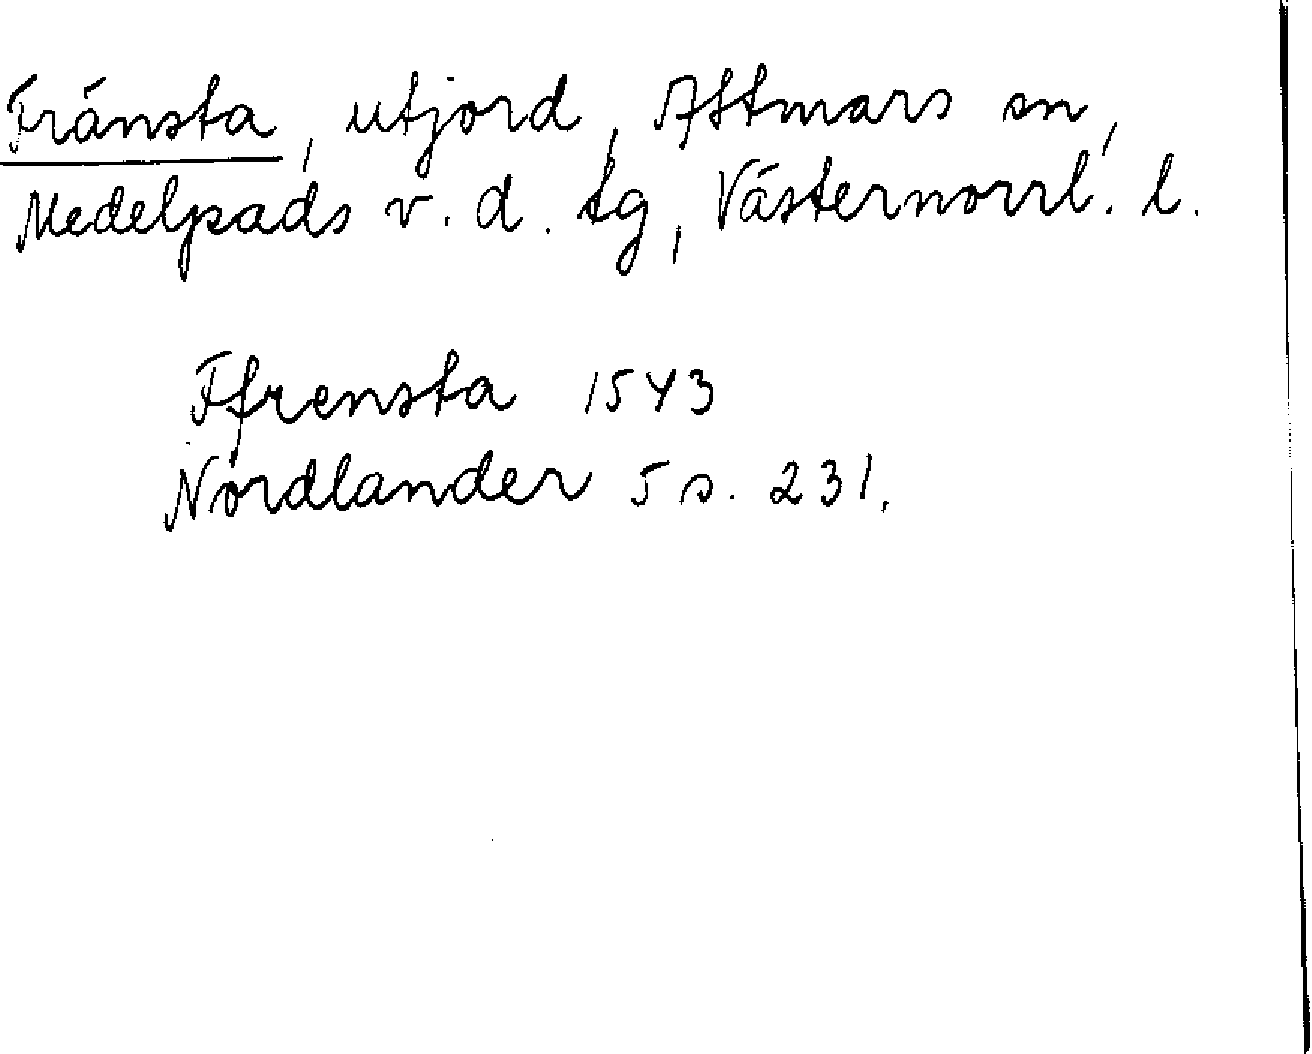 Fränsta, utjord, Attmars sn,
Medelpads v. d. tg, Västernorrl. l.
Ffrensta 1543
Nordlander 5 s. 231.